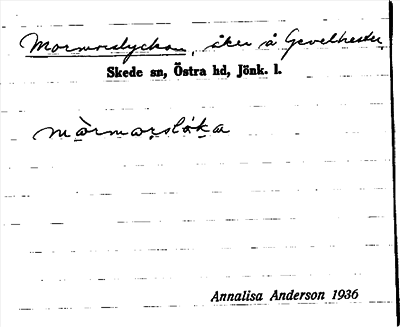 Mormorslyckan, åker å Gevelhester
Skede sn, Östra hd, Jönk. l.
mòrmorslóka
Annalisa Anderson 1936